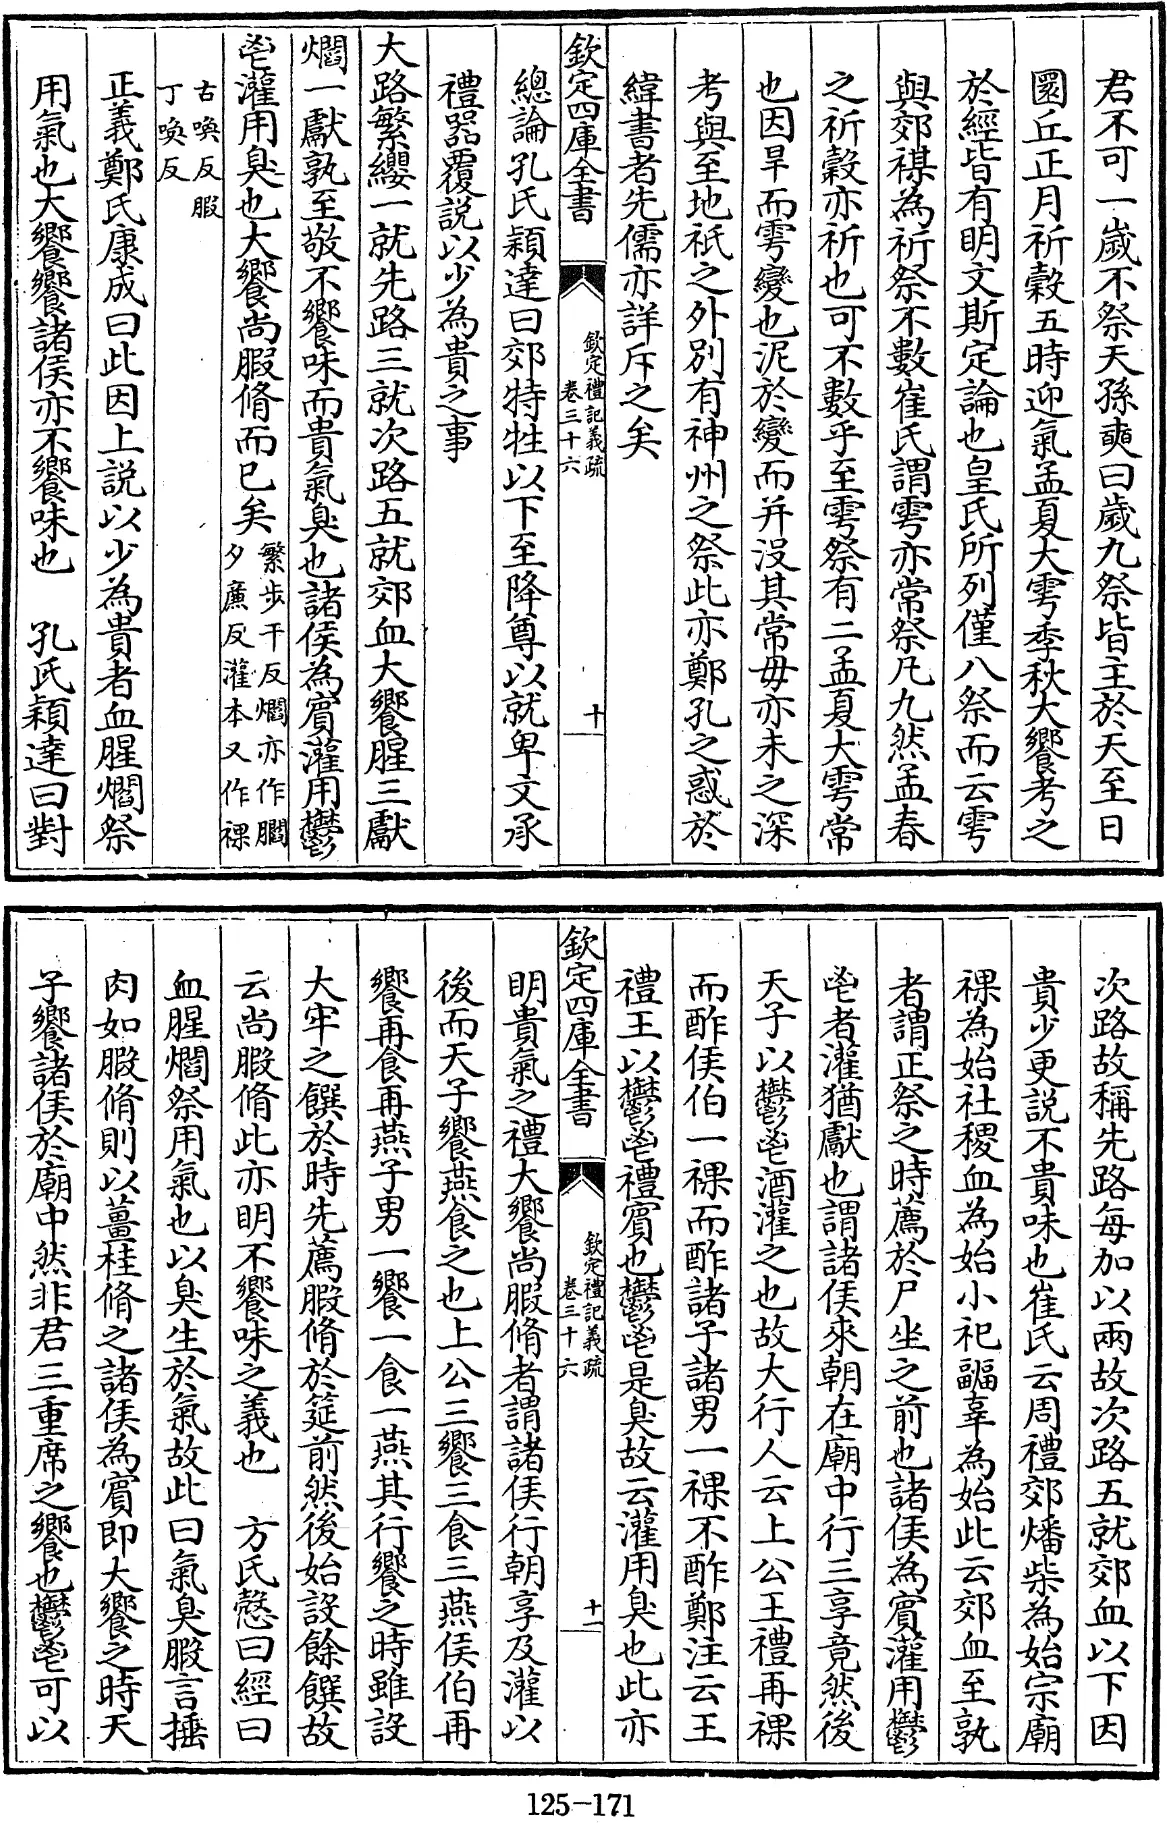 君不可一歲不祭天孫奭曰歲九祭皆主於天至日
圜丘正月祈穀五時迎氣孟夏大雩季秋大饗考之
於經皆有明文斯定論也皇氏所列僅八祭而云雩
與郊禖為祈祭不數崔氏謂雩亦常祭凡九然孟春
之祈穀亦祈也可不數乎至雩祭有二孟夏大雩常
也因旱而雩變也泥於變而并沒其常毋亦未之深
考與至地祇之外別有神州之祭此亦鄭孔之惑於
緯書者先儒亦詳斥之矣
欽定四庫全書
欽定禮記義疏
卷三十六
十
總論孔氏穎達曰郊特牲以下至降尊以就卑文承
禮器覆說以少為貴之事
大路繁纓一就先路三就次路五就郊血大饗腥三獻
爓一獻孰至敬不饗味而貴氣臭也諸侯為賓灌用鬱
鬯灌用臭也大饗尚腶脩而已矣
繁步干反爓亦作膶
夕廉反灌本又作祼
古喚反腶
丁喚反
正義鄭氏康成曰此因上說以少為貴者血腥爓祭
用氣也大饗饗諸侯亦不饗味也 孔氏穎達曰對
次路故稱先路每加以兩故次路五就郊血以下因
貴少更說不貴味也崔氏云周禮郊燔柴為始宗廟
祼為始社稷血為始小祀疈辜為始此云郊血至孰
者謂正祭之時薦於尸坐之前也諸侯為賓灌用鬱
鬯者灌猶獻也謂諸侯來朝在廟中行三享竟然後
天子以鬱鬯酒灌之也故大行人云上公王禮再祼
而酢侯伯一祼而酢諸子諸男一祼不酢鄭注云王
禮王以鬱鬯禮賓也鬱鬯是臭故云灌用臭也此亦
欽定四庫全書
欽定禮記義疏
卷三十六
十一
明貴氣之禮大饗尚腶脩者謂諸侯行朝享及灌以
後而天子饗燕食之也上公三饗三食三燕侯伯再
饗再食再燕子男一饗一食一燕其行饗之時雖設
大牢之饌於時先薦腶脩於筵前然後始設餘饌故
云尚腶脩此亦明不饗味之義也 方氏慤曰經曰
血腥爓祭用氣也以臭生於氣故此曰氣臭腶言捶
肉如腶脩則以薑桂脩之諸侯為賓即大饗之時天
子饗諸侯於廟中然非君三重席之饗也鬱鬯可以
125-171